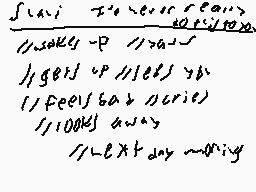 I've never really
//wakes up //yawn
//gets up //sees you
//feels bad //cries
//looks away
//next day morning